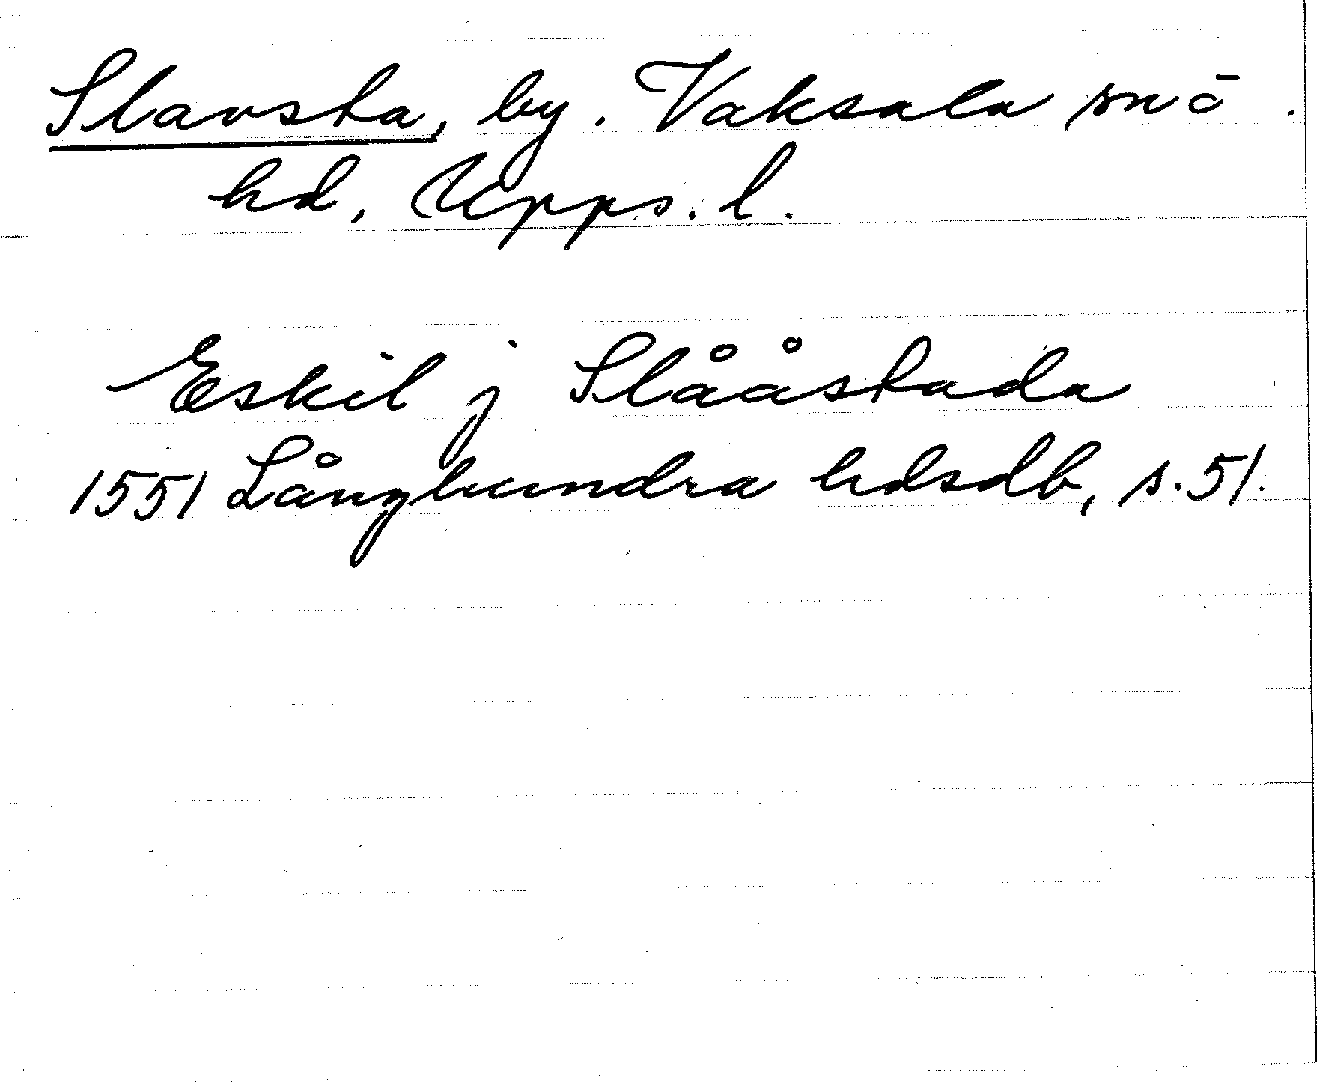 Slavsta, by. Vaksala sn o
hd, Upps. l.
Eskil j Slååstada
1551 Långhundra hdsdb, s. 51.